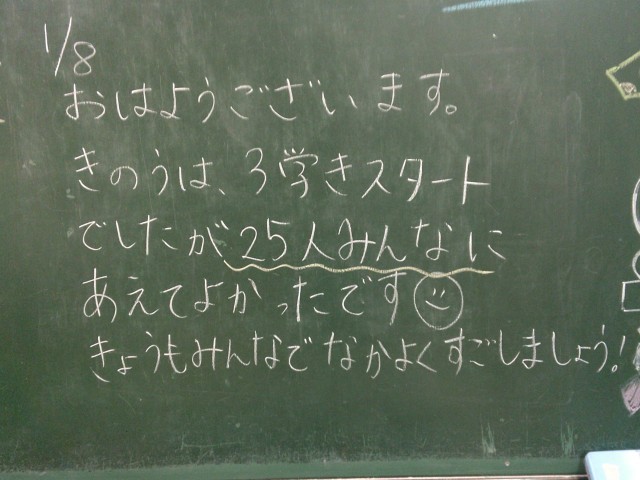 1/8
おはようございます。
きのうは、3学きスタート
でしたが25人みんなに
あえてよかったです
きょうもみんなでなかよくすごしましょう!